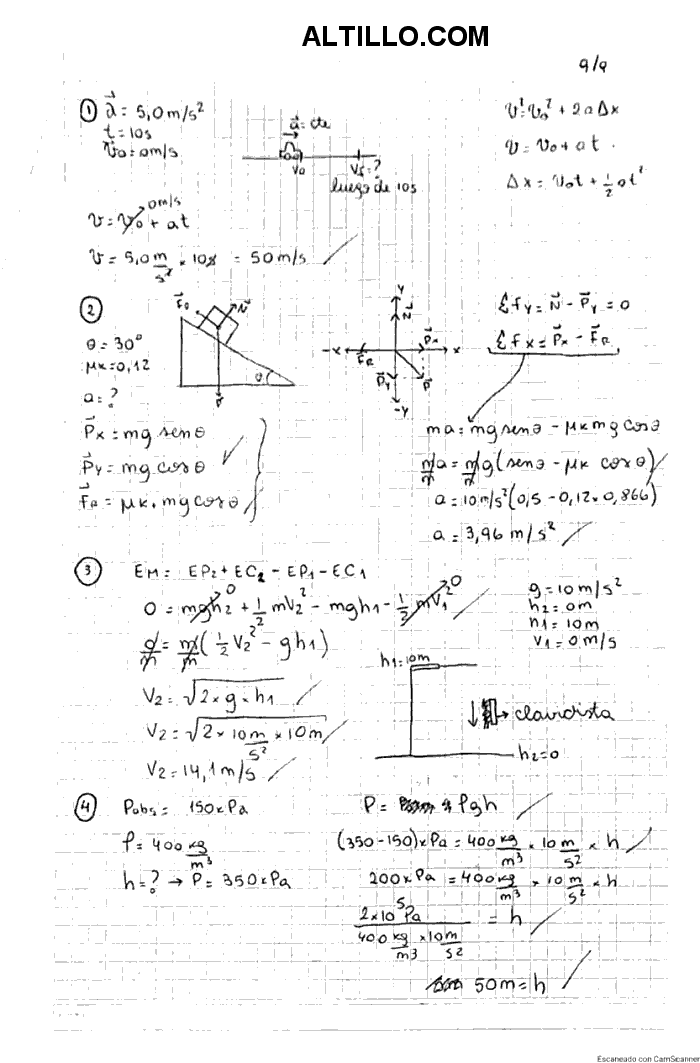 ALTILLO.COM
9/9
① a⃗ = 5,0 m/s²
t = 10s
v⃗o = 0m/s
a⃗ = cte
Vo
Vf = ?
luego de 10s
v² = vo² + 2aΔx
v = vo + at
Δx = vot + ½at²
v = vo + at
0m/s
v = 5,0 m/s² × 10s = 50 m/s
②
θ = 30°
μk = 0,12
a = ?
P⃗x = mg senθ
P⃗y = mg cosθ
F⃗R = μk . mg cosθ
F⃗R
N⃗
θ
P⃗
Y
N⃗
P⃗x
-x
x
F⃗R
P⃗y
P⃗
-Y
Σfy = N⃗ - P⃗y = 0
Σfx = P⃗x - F⃗R
ma = mg senθ - μk mg cosθ
m/m a = m/m g (senθ - μk cosθ)
a = 10 m/s² (0,5 - 0,12 × 0,866)
a = 3,96 m/s²
③ EM = EP2 + EC2 - EP1 - EC1
0 = mgh2 + ½ mV2² - mgh1 - ½ mV1²
0
0
0/m = m/m (½ V2² - gh1)
V2 = √2 × g × h1
V2 = √2 × 10 m/s² × 10m
V2 = 14,1 m/s
g = 10 m/s²
h2 = 0m
h1 = 10m
V1 = 0 m/s
h1 = 10m
clavadista
h2 = 0
④ Pabs = 150 kPa
ρ = 400 kg/m³
h = ? → P = 350 kPa
P = ρgh
(350 - 150) kPa = 400 kg/m³ × 10 m/s² × h
200 kPa = 400 kg/m³ × 10 m/s² × h
2×10⁵ Pa / 400 kg/m³ × 10 m/s² = h
50 m = h
Escaneado con CamScanner